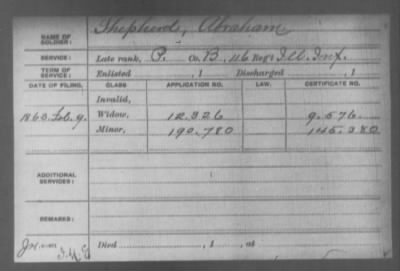 NAME OF SOLDIER: Shepherd, Abraham
SERVICE: Late rank, P. Co. B, 116 Reg't Ill. Inf.
TERM OF SERVICE: Enlisted , 1 Discharged , 1
DATE OF FILING. CLASS. APPLICATION NO. LAW. CERTIFICATE NO.
Invalid,
1863. Feb. 9. Widow, 12.326 9.576
Minor, 190.780 145.380
ADDITIONAL SERVICES:
REMARKS:
Died , 1 , at